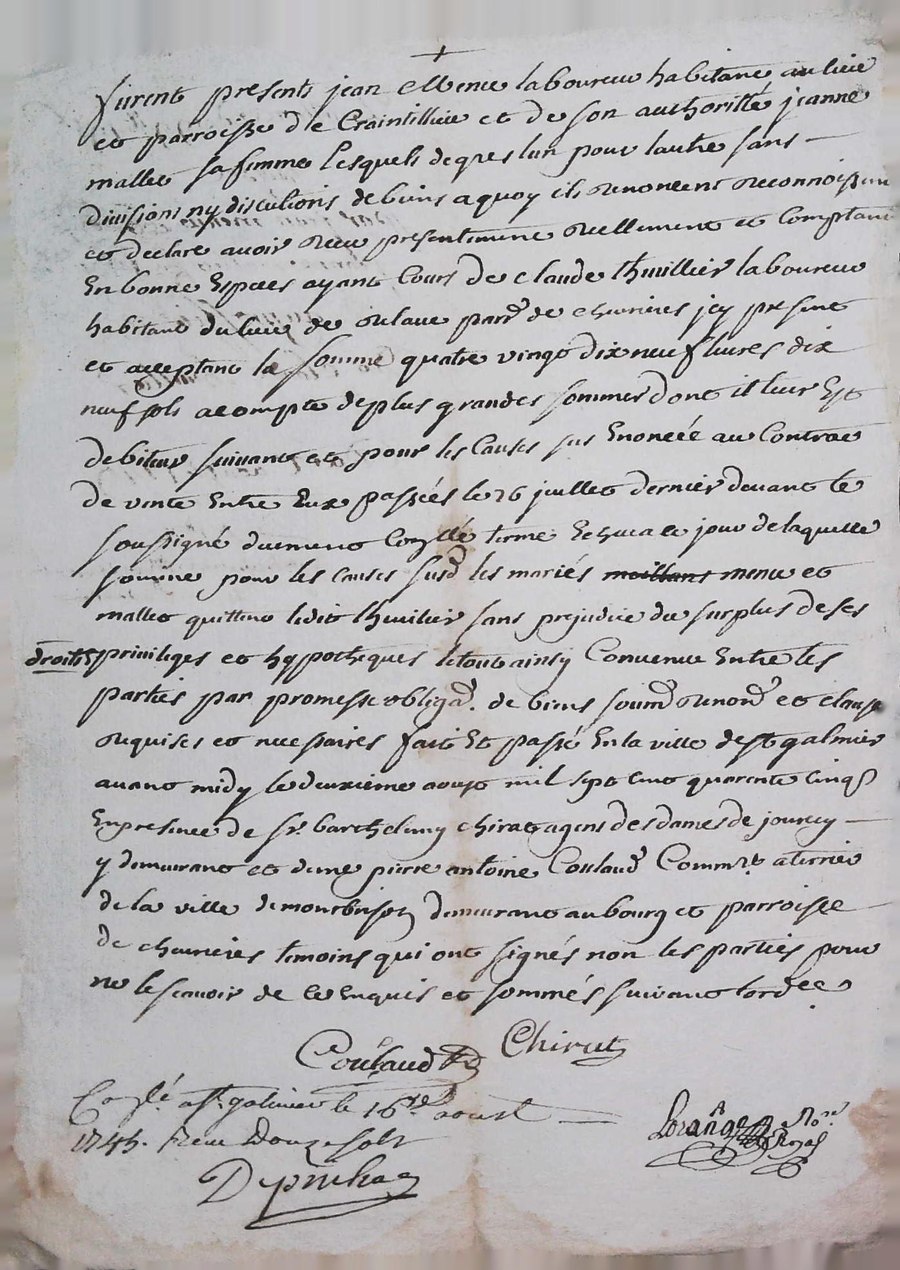 furent presents jean Mence laboureur habitant au lieu
et parroisse de Craintillieu et de son authoritté jeanne
mallet sa femme lesquels de gres lun pour lautre sans
divisions ny discutions de biens a quoy ils renoncent reconnoissent
et declare avoir receu presentement reellement et comptant
En bonne Especes ayant Cours de Claude thuillier laboureur
habitant du lieu de parr. de chevrieres jcy present
et acceptant la somme quatre vingt dix neuf livres dix
neuf sols a compte de plus grandes sommes dont il leur Est
debiteur suivant et pour les Causes sus Enoncéé au Contrat
de vente Entre Eux passéés le 26 juillet dernier devant le
soussigné duement Conllé terme Echu a ce jour de laquelle
somme pour les causes susd. les mariés mence et
mallet quittent ledit thuilier sans prejudice du surplus de ses
droits priviliges et hypotheques le tout ainsy Convenue Entre les
parties par promesse obligaon. de biens soumon renoncon et clause
requises et necessaires fait Et passé En la ville de St galmier
avant midy le deuxieme aoust mil sept cent quarente Cinq
En presence de sr. barthelemy chirat agent des dames de jourcey
y demeurant et de me pierre antoine Coulaud Commre a terrier
de la ville de montbrison demeurant au bourg et parroisse
de chevrieres temoins qui ont signés non les parties pour
ne le scavoir de ce Enquis et sommés suivant lordce.
Coulaud Chirat
Conllé a St galmier le 16me aoust
1745. Receu Douze sols
Lorange Nore
Royal